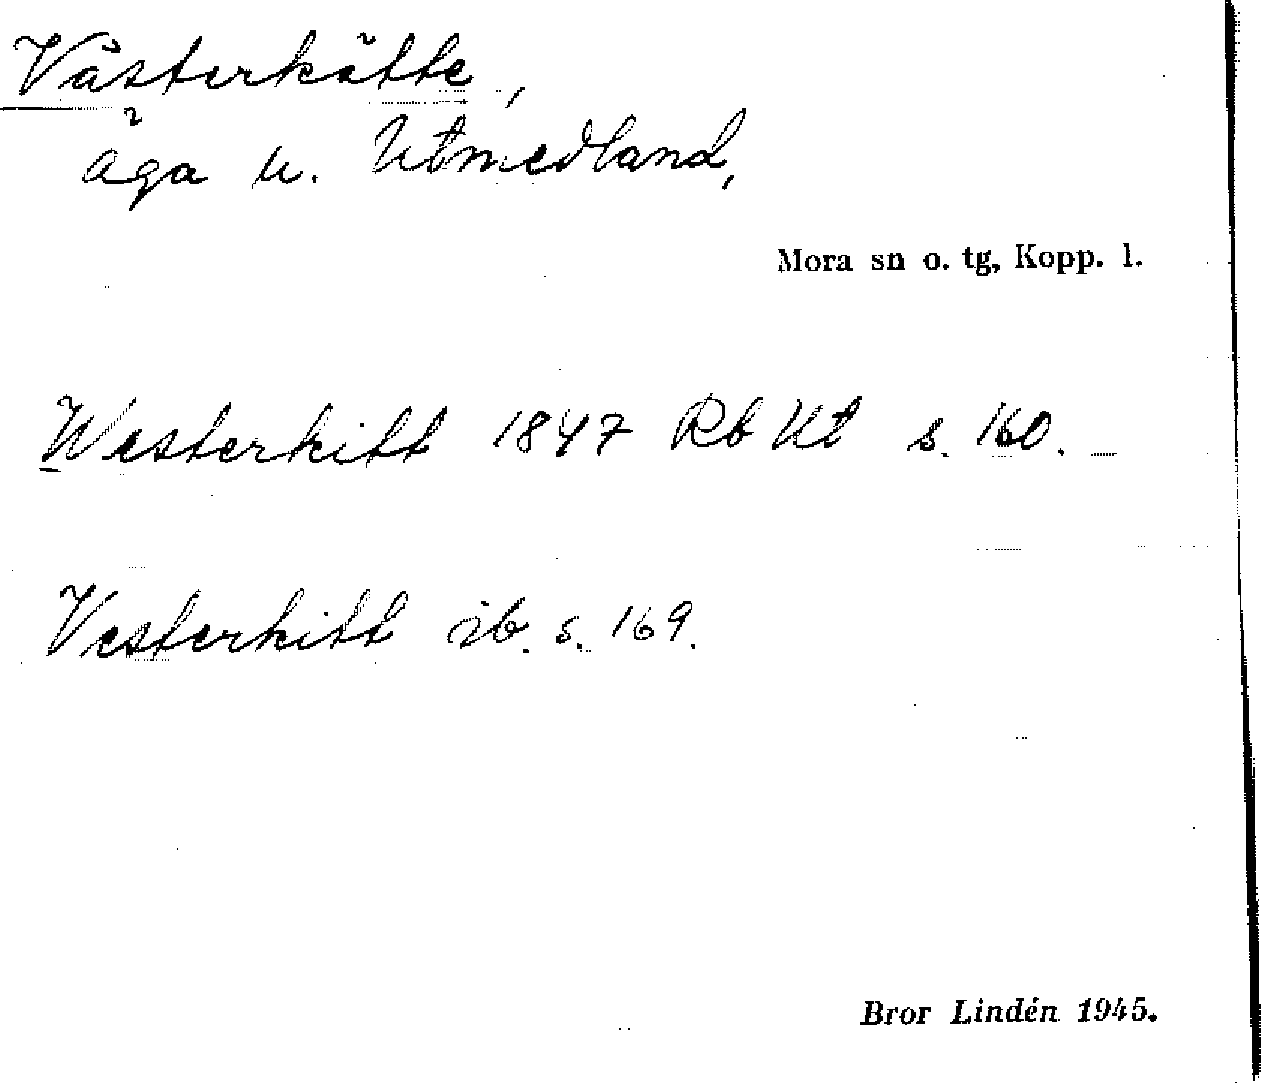 Västerkätte,
äga u. Utmedland,
Mora sn o. tg, Kopp. l.
Westerkitt 1847 Rb Ut s. 160.
Vesterkitt ib. s. 169.
Bror Lindén 1945.